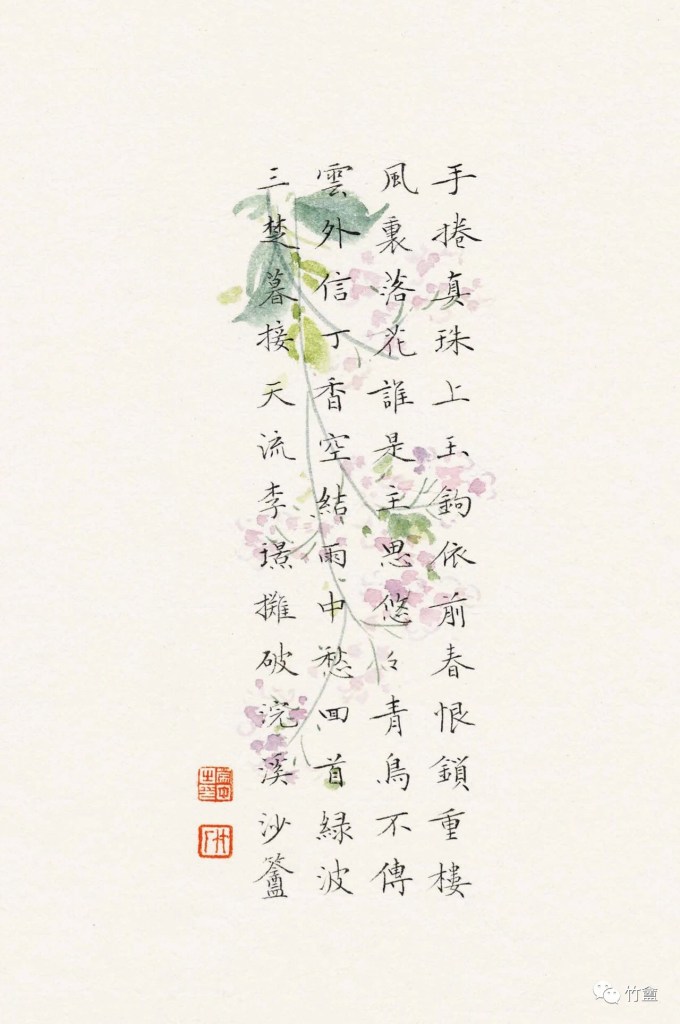 手捲真珠上玉鉤依前春恨鎖重樓
風裏落花誰是主思悠々青鳥不傳
雲外信丁香空結雨中愁囬首緑波
三楚暮接天流李璟攤破浣溪沙
竹盦